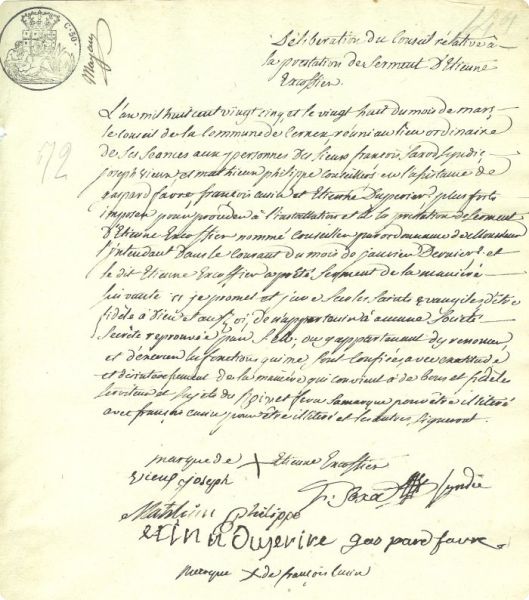 C. 50.
Délibération du Conseil relative à
la prestation de Serment D'Etienne
Excoffier.
L'an mil huit cent vingt cinq et le vingt huit du mois de mars
le conseil de la Commune de Cernex, réuni au lieu ordinaire
de ses séances aux personnes des sieurs françois syndic,
joseph Vieux et mathieu philippe conseillers en l'assistance de
gaspard favre françois cusin et Etienne Duperier plus forts
imposés pour procéder à l'installation et à la prestation de serment
D'Etienne Excoffier nommé Conseiller par ordonnance de Monsieur
l'intendant Dans le courant du mois de janvier Dernier et
le dit Etienne Excoffier a prêté Serment de la manière
suivante si je promet et jure sur les Saints évangiles d'être
fidèle à Dieu et au Roi, de n'appartenir à aucune Société
Secrète reprouvée par ou y appartenant d'y renoncer,
et d'exercer les fonctions qui me sont confiées avec exactitude
et désintéressement de la manière qui convient à de bons et fidèles
serviteur et sujets du Roi, et fera sa marque pour être illitéré
avec françois cusin pour être illitéré et les autres signeront.
marque de + Etienne Excoffier
vieux joseph
syndic
Mathieu philippe
gas pard favre
marque + de françois cusin
72